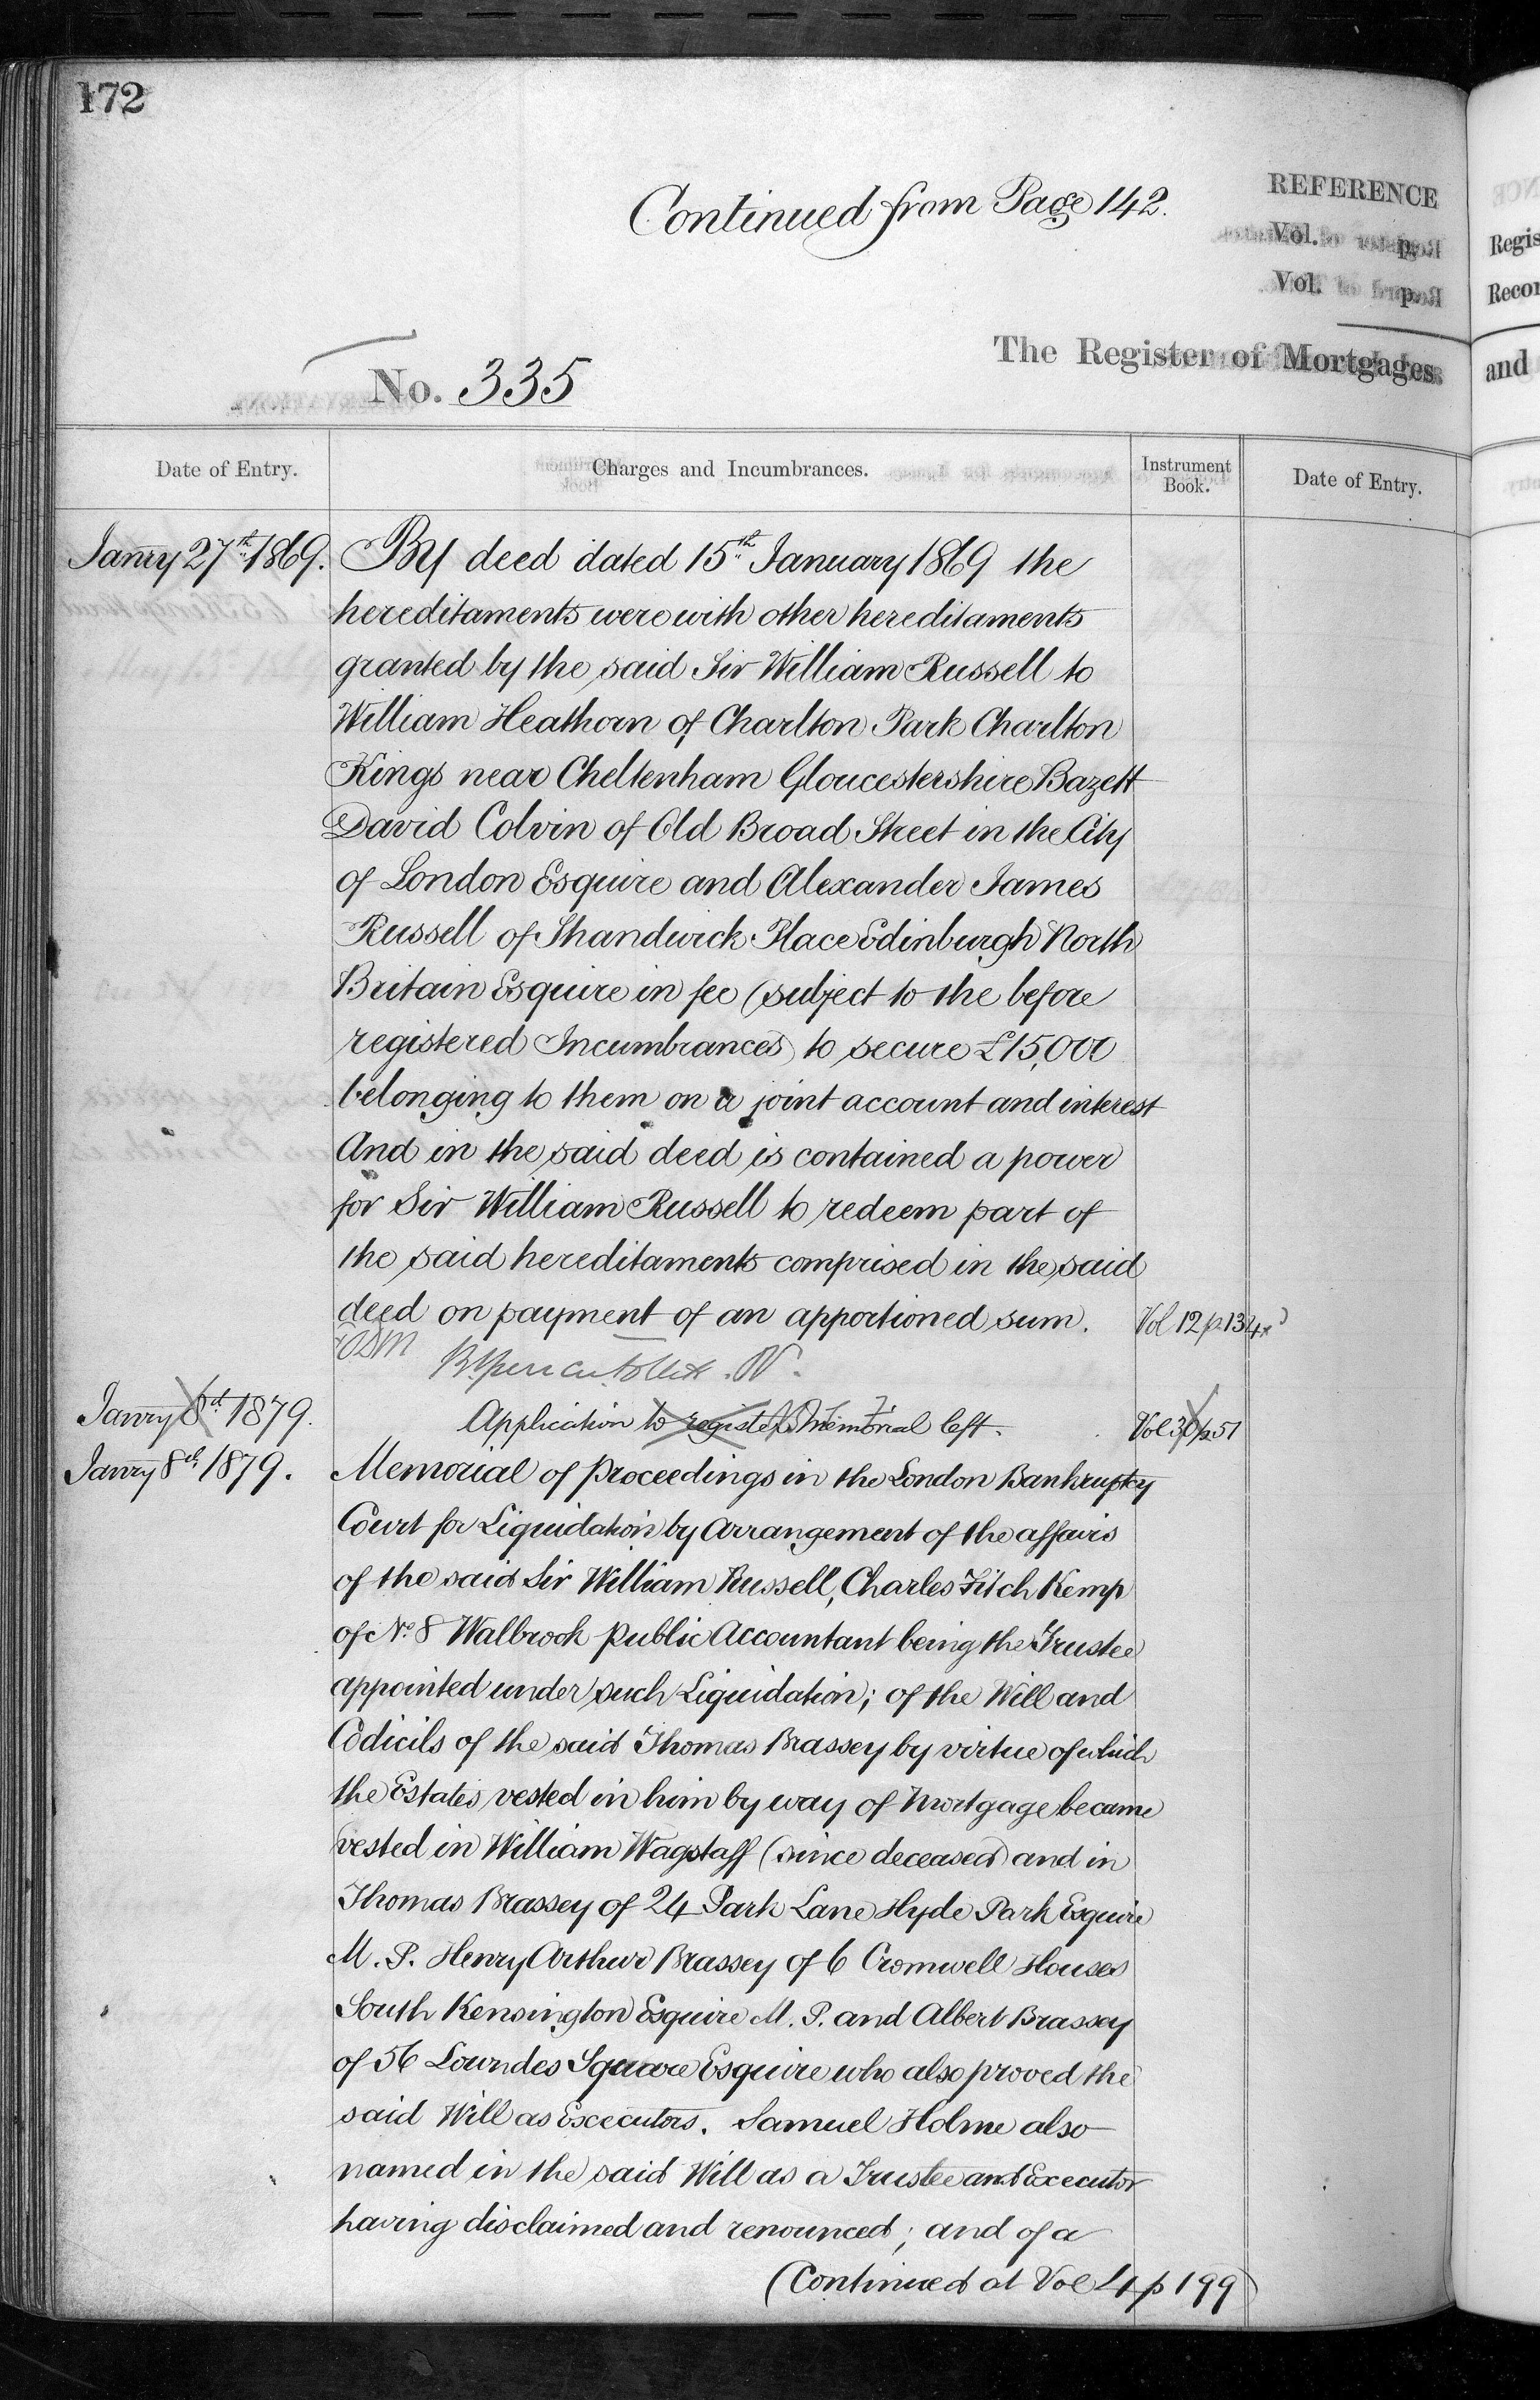 172
Continued from Page 142.
REFERENCE
Vol. p.
Vol. p.
The Register of Mortgages
No. 335
Date of Entry. Charges and Incumbrances. Instrument Book. Date of Entry.
Janry 27th 1869. By deed dated 15th January 1869 the
hereditaments were with other hereditaments
granted by the said Sir William Russell to
William Heathorn of Charlton Park Charlton
Kings near Cheltenham Gloucestershire Bazett
David Colvin of Old Broad Street in the City
of London Esquire and Alexander James
Russell of Shandwick Place Edinburgh North
Britain Esquire in fee (subject to the before
registered Incumbrances) to secure £15,000
belonging to them on a joint account and interest
And in the said deed is contained a power
for Sir William Russell to redeem part of
the said hereditaments comprised in the said
deed on payment of an apportioned sum. Vol 12 p. 134
Janry 8th 1879. Application to register Memorial left. Vol 30 p 51
Janry 8th 1879. Memorial of Proceedings in the London Bankruptcy
Court for Liquidation by Arrangement of the affairs
of the said Sir William Russell, Charles Fitch Kemp
of No. 8 Walbrook Public Accountant being the Trustee
appointed under such Liquidation; of the Will and
Codicils of the said Thomas Brassey by virtue of which
the Estates vested in him by way of Mortgage became
vested in William Wagstaff (since deceased) and in
Thomas Brassey of 24 Park Lane Hyde Park Esquire
M. P. Henry Arthur Brassey of 6 Cromwell Houses
South Kensington Esquire M. P. and Albert Brassey
of 56 Lowndes Square Esquire who also proved the
said Will as Executors. Samuel Holme also
named in the said Will as a Trustee and Executor
having disclaimed and renounced; and of a
(Continued at Vol 4 p 199)
Regis
Recor
and